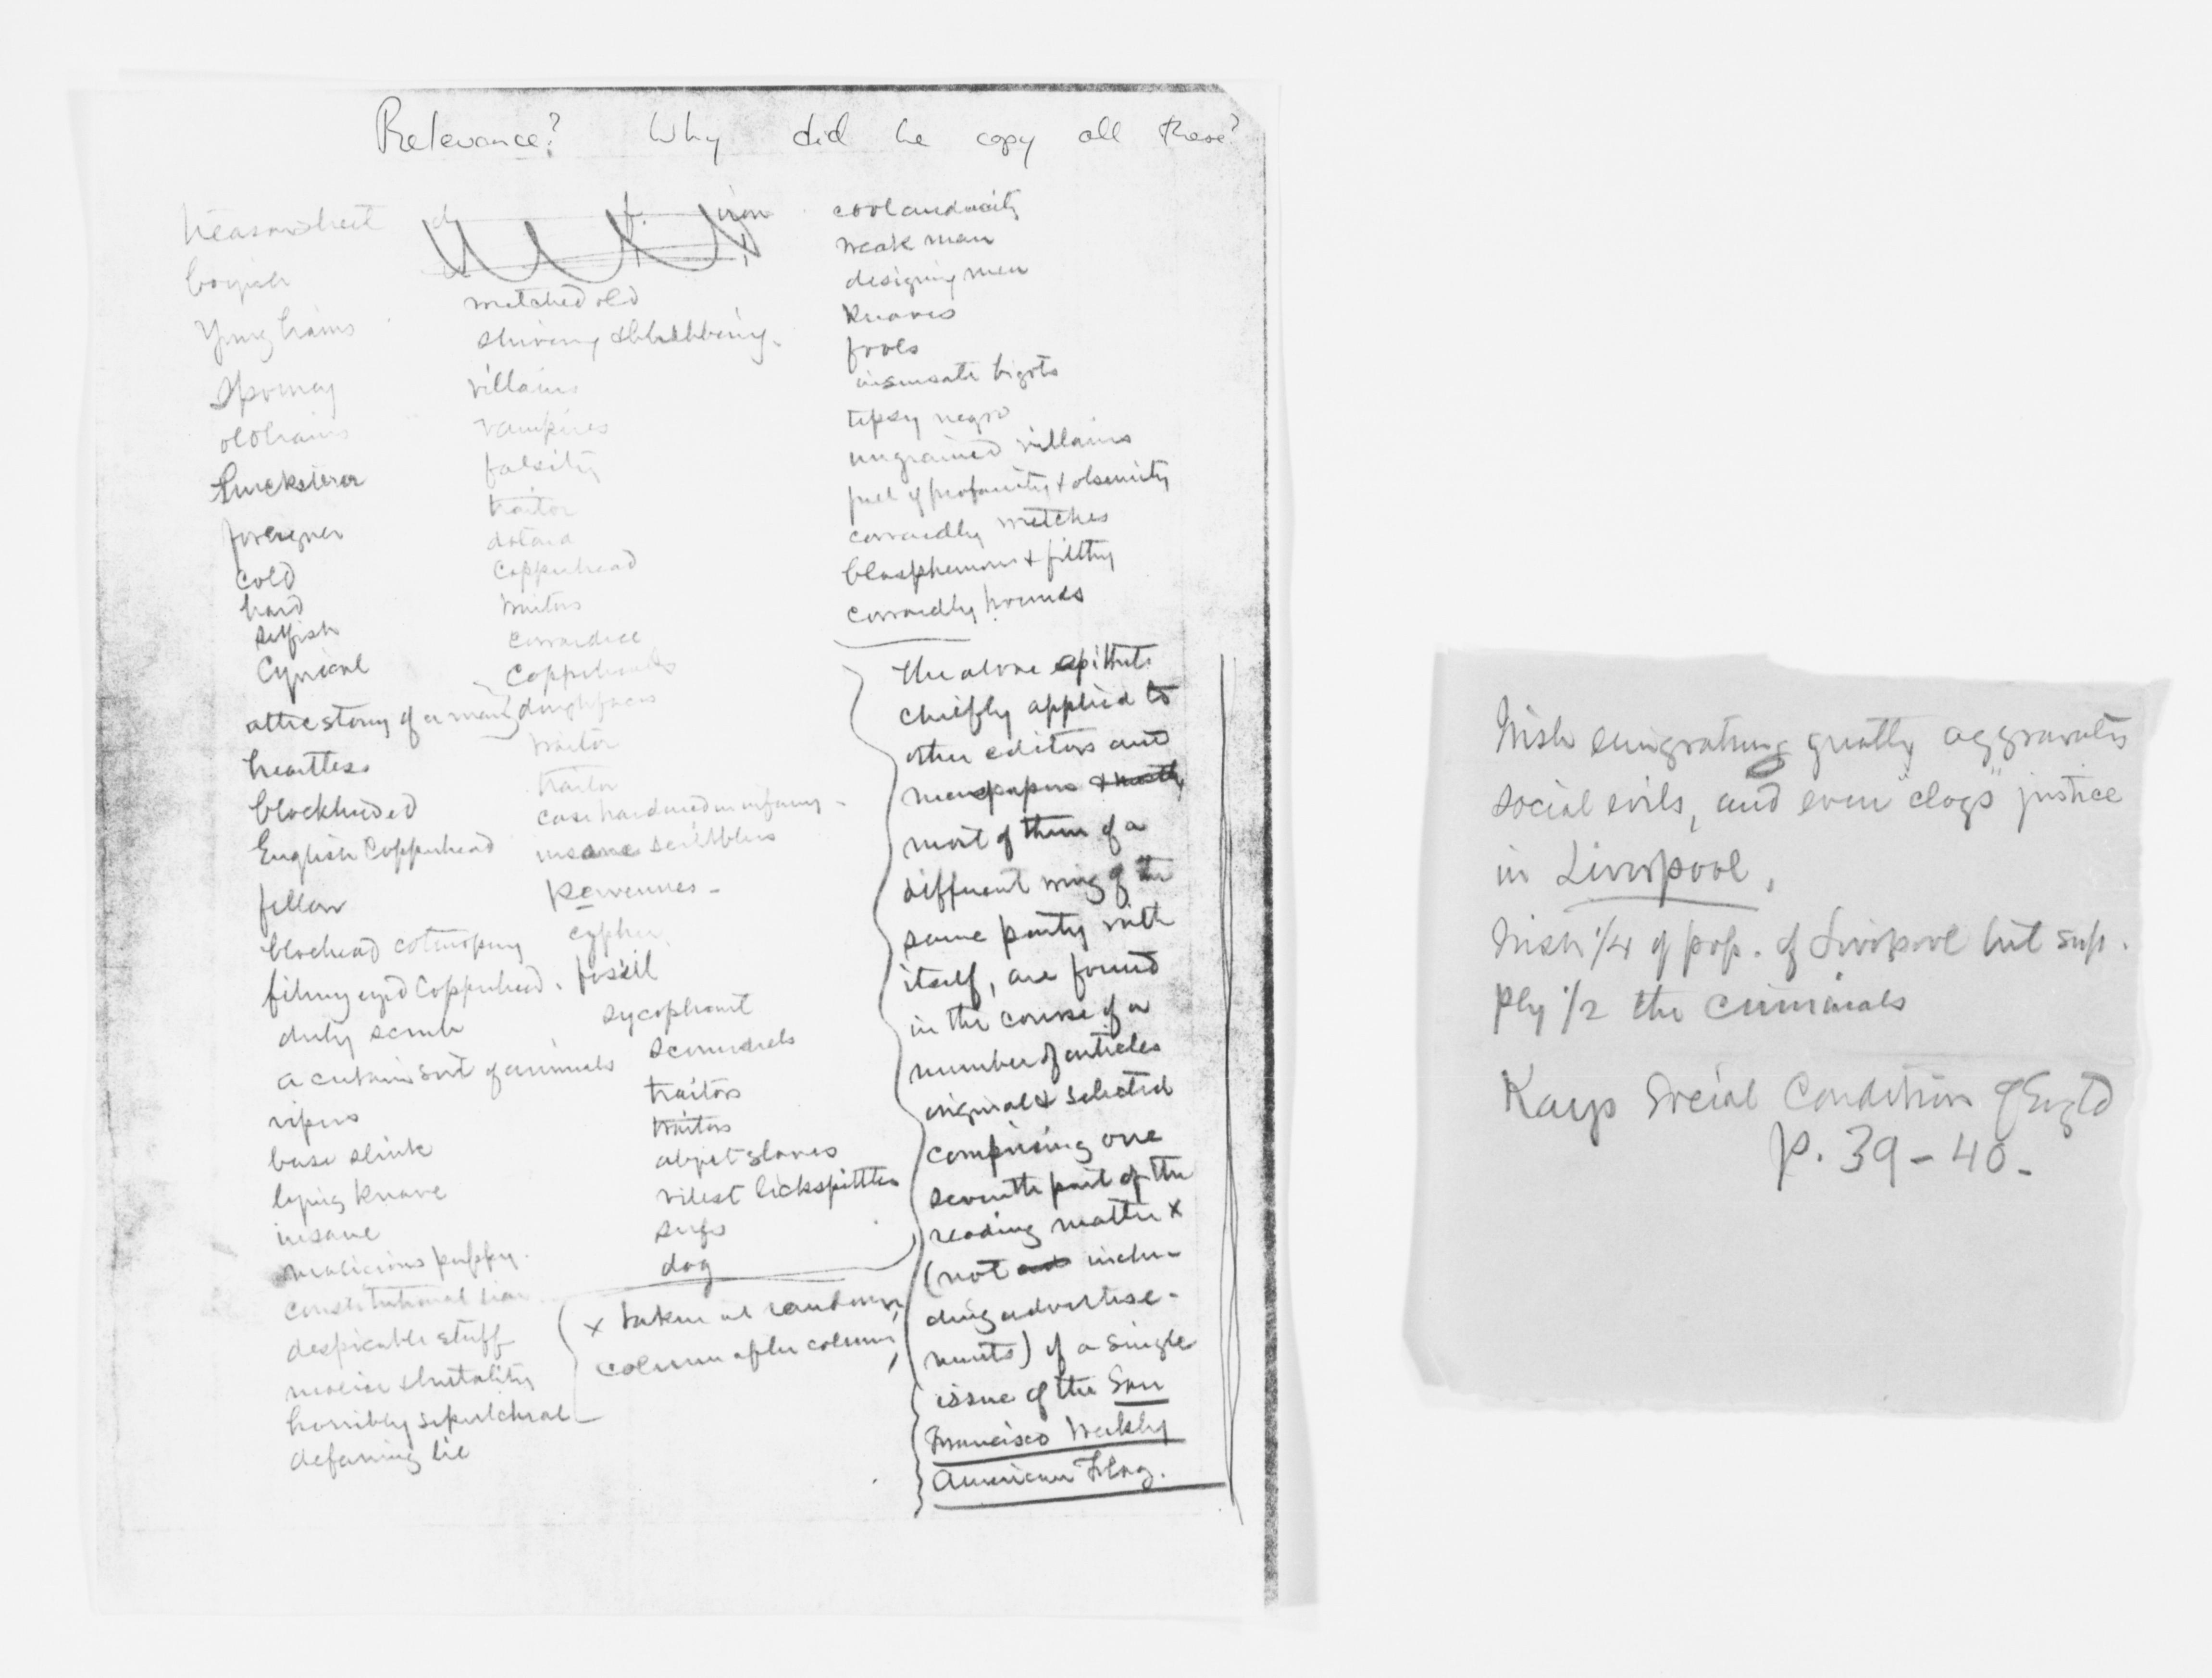 Relevance? Why did he copy all these?
treason sheet
Young hams
old hams
Hucksterer
foreigner
cold
hard
selfish
Cynical
attic story of a man
heartless
blockheaded
English Copperhead
fellow
blockhead cotemporary
filmy eyed Copperhead
dirty scrub
a certain sort of animals
vipers
base slink
lying knave
insane
malicious puppy
constitutional liar
despicable stuff
malice & brutality
horribly sepulchral
defaming lie
wretched old
shivering & blubbering
villains
vampires
falsity
traitor
dotard
Copperhead
traitors
cowardice
Copperheads
doughfaces
traitor
traitor
case hardened in infamy
insane scribblers
cypher
fossil
sycophant
scoundrels
traitors
traitors
abject slaves
vilest lickspittles
serfs
dog
x taken at random,
column after column,
cool audacity
weak man
designing men
knaves
fools
insensate bigots
tipsy negro
ingrained villains
full of profanity & obscenity
cowardly wretches
blasphemous & filthy
cowardly hounds
The above epithets
chiefly applied to
other editors and
newspapers & mostly
most of them of a
different wing of the
same party with
itself, are found
in the course of a
number of articles
original & selected
comprising one
seventh part of the
reading matter x
(not and inclu-
ding advertise-
ments) of a single
issue of the San
Francisco Weekly
American Flag.
Irish emigrating greatly aggravates
social evils, and even "clogs" justice
in Liverpool,
Irish 1/4 of pop. of Liverpool but sup-
ply 1/2 the criminals
Kays Social Condition of Engld
p. 39-40-